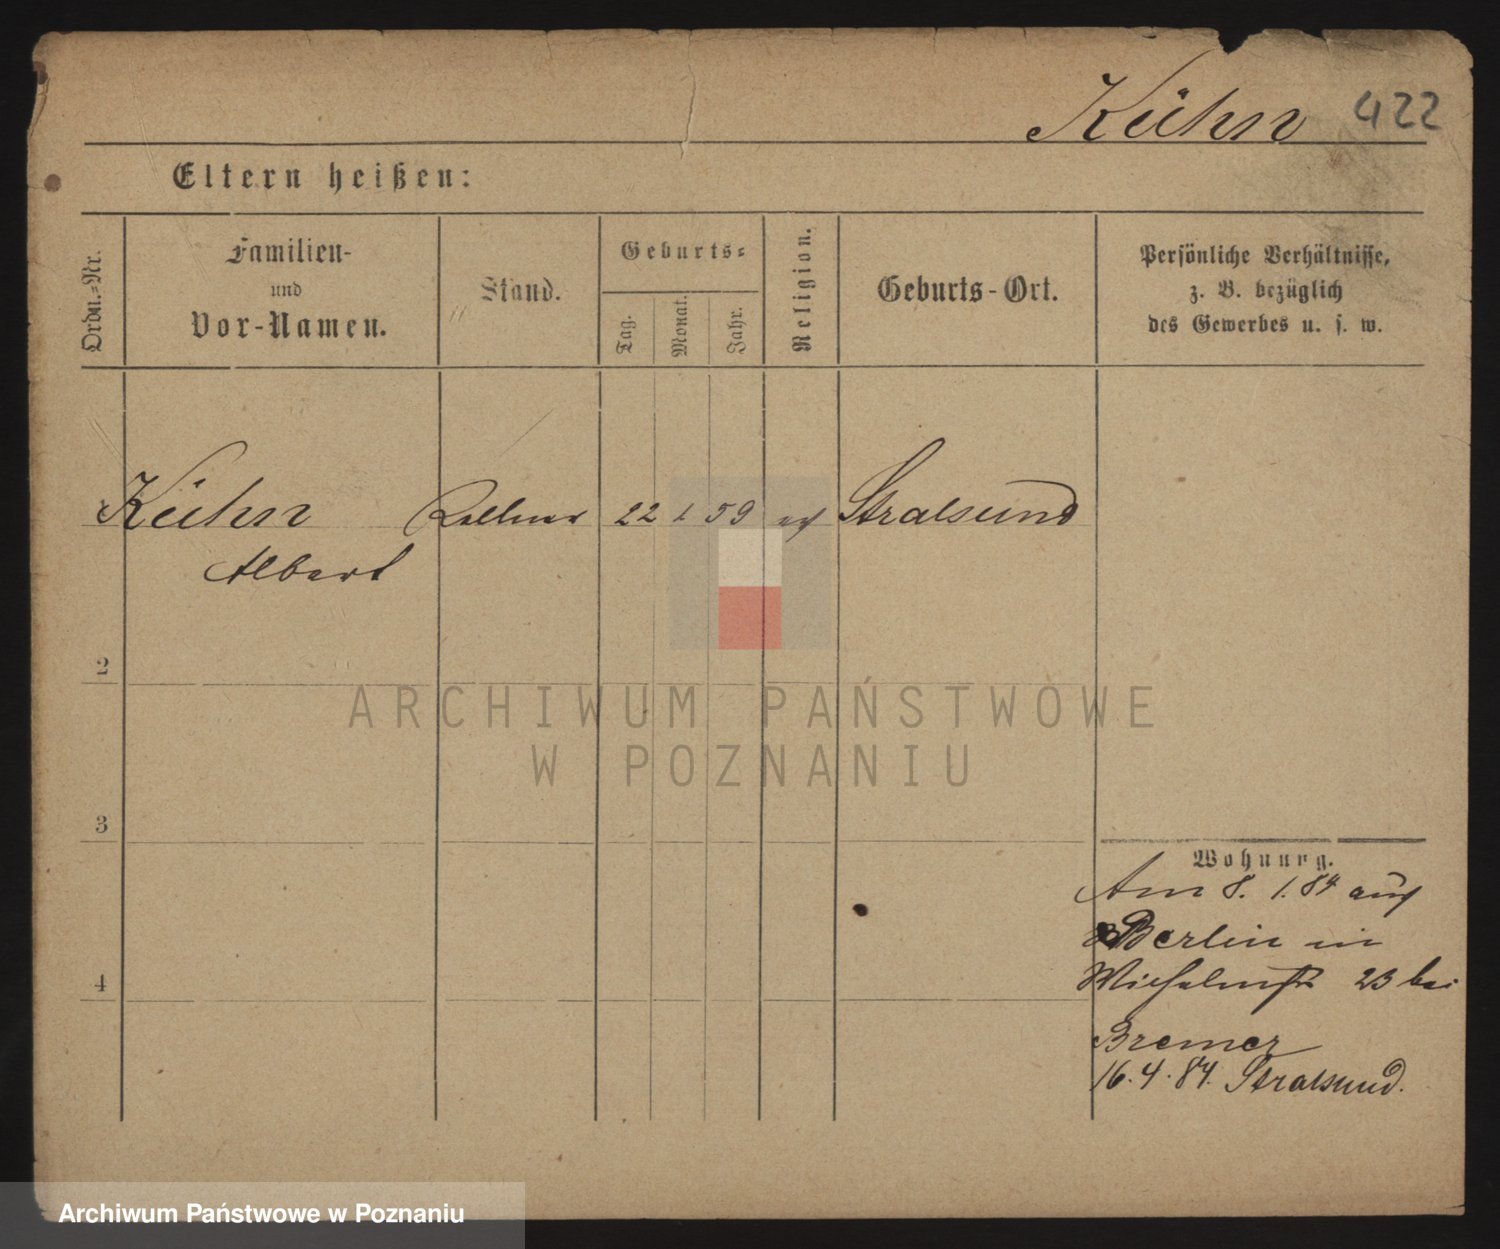 Kühn 422
Eltern heißen:
Ordn.-Nr.
Familien-
und
Vor-Namen.
Stand.
Geburts-
Tag.
Monat.
Jahr.
Religion.
Geburts-Ort.
Persönliche Verhältnisse,
z. B. bezüglich
des Gewerbes u. s. w.
Kühn Kellner 22 1 59 ev Stralsund
Albert
2
3
4
Wohnung.
Am 8. 1. 84 aus
Berlin in
Wilhelmstr 23 bei
Bremer
16. 4. 84. Stralsund.
ARCHIWUM PAŃSTWOWE
W POZNANIU
Archiwum Państwowe w Poznaniu